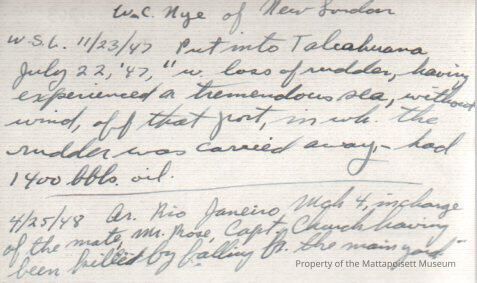 W.C. Nye of New London
W.S.L. 11/23/47 Put into Talcahuana
July 22, '47, "w. loss of rudder, having
experienced a tremendous sea, without
wind, off that port, in wh. the
rudder was carried away, - had
1400 bbls. oil.
4/25/48 Ar. Rio Janeiro, Mch 4, in charge
of the mate, Mr. Rose, Capt. Church having
been killed by falling fr. the main yard"
Property of the Mattapoisett Museum